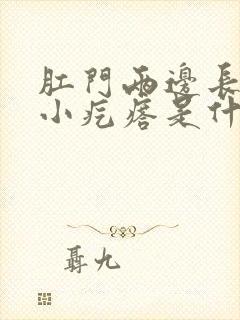 肛門兩邊長
小疙瘩是什
聶九